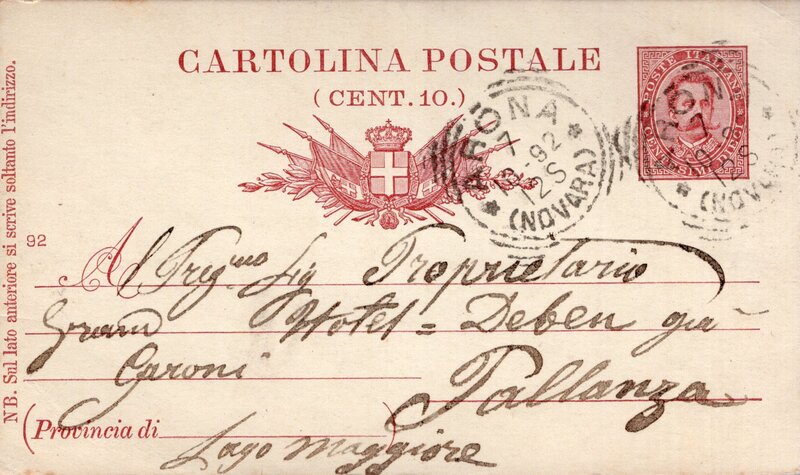 CARTOLINA POSTALE
(CENT. 10.)
POSTE ITALIANE
CENTESIMI DIECI
ARONA
7
92
12S
(NOVARA)
ARONA
7
92
12S
(NOVARA)
NB. Sul lato anteriore si scrive soltanto l'indirizzo.
92
Al Preg.mo Sig Proprietario
Grand Hotel = Deben già
Garoni Pallanza
(Provincia di
Lago Maggiore